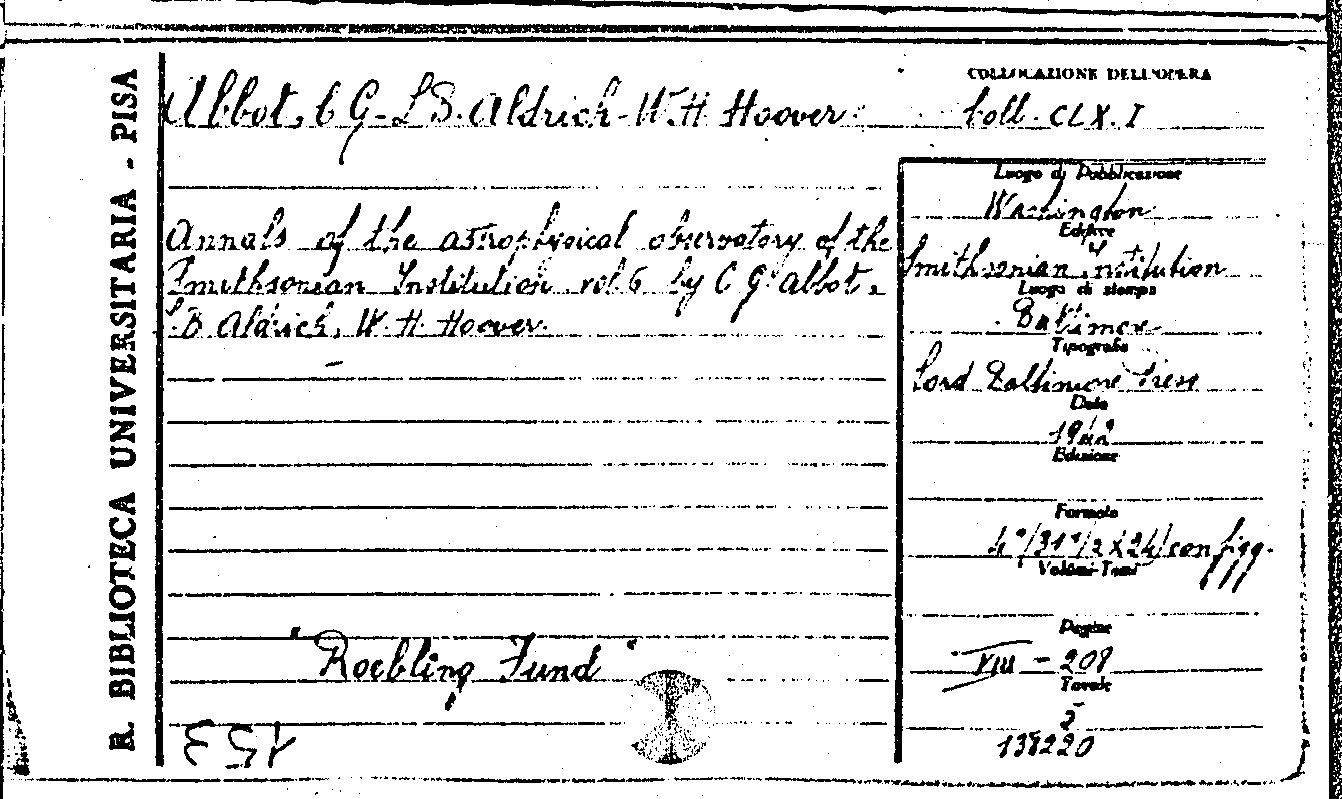 R. BIBLIOTECA UNIVERSITARIA - PISA
Abbot, C G - L B. Aldrich - W. H Hoover.
COLLOCAZIONE DELL'OPERA
Coll. CLX. I
Annals of the astrophysical observatory of the
Smithsonian Institution vol 6 by C G Abbot,
L. B Aldrich, W. H. Hoover.
"Roebling Fund"
153
Luogo di Pubblicazione
Washington
Editore
Smithsonian Institution
Luogo di stampa
Baltimore
Tipografia
Lord Baltimore Press
Data
1942
Edizione
Formato
4°/31 1/2 X 24/ con figg.
Volumi-Tomi
Pagine
VIII - 208
Tavole
2
138220